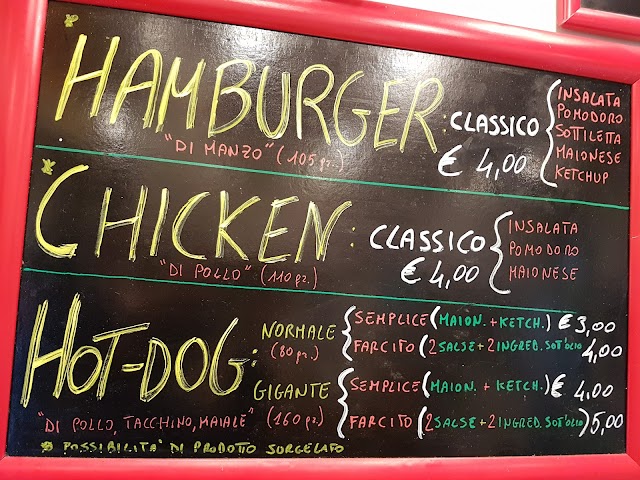 * HAMBURGER: CLASSICO { INSALATA
POMODORO
SOTTILETTA
MAIONESE
KETCHUP
"DI MANZO" (105 gr.)
€ 4,00
* CHICKEN: CLASSICO { INSALATA
POMODORO
MAIONESE
"DI POLLO" (110 gr.)
€ 4,00
HOT-DOG: NORMALE (80 gr.) { SEMPLICE (MAION. + KETCH.) € 3,00
FARCITO (2 SALSE + 2 INGRED. SOTT'OLIO) 4,00
GIGANTE (160 gr.) { SEMPLICE (MAION. + KETCH.) € 4,00
FARCITO (2 SALSE + 2 INGRED. SOTT'OLIO) 5,00
"DI POLLO, TACCHINO, MAIALE"
* POSSIBILITA' DI PRODOTTO SURGELATO